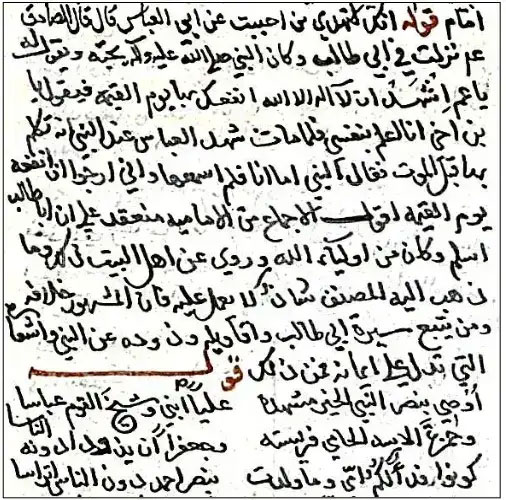 انتقام قوله انك لا تهدي من احببت عن ابي العباس قال قال الصادق
عم نزلت في ابي طالب وكان النبي صلى الله عليه وآله يحبه ويقول له
يا عم اشهد ان لا اله الا الله انفعك بها يوم القيمة فيقول يا
بن اخي انا اعلم بنفسي فلما مات شهد العباس عند النبي انه تكلم
بها قبل الموت فقال النبي اما انا فلم اسمعها واني ارجوا ان انفعه
يوم القيمة اقول الاجماع من الامامية منعقد على ان ابا طالب
اسلم وكان من اولياء الله وروي عن اهل البيت
ذهب اليه المصنف شاذ لا يعمل عليه فان المشهور خلافه
ومن يتبع سيرة ابي طالب واقاويله وذبه عن النبي واشعاره
التي تدل على ايمانه فمن ذلك
أوصي بنصر النبي الخير مشهده عليا ابني وشيخ القوم عباسا
وحمزة الاسد الحامي وجعفرا أن يذودوا دونه الناسا
كونوا وما ولدت بنصر احمد دون الناس اتراسا